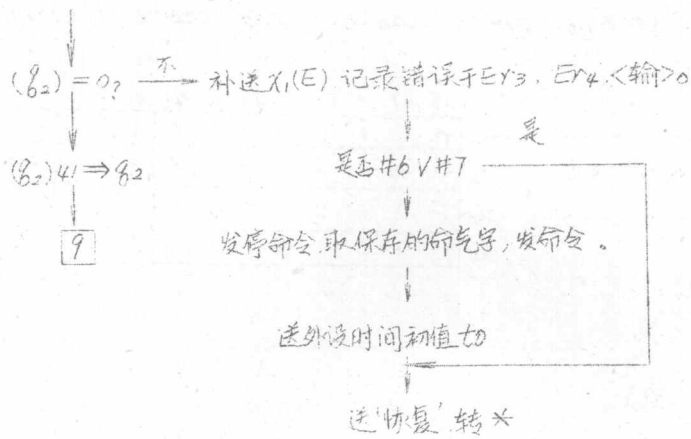 (g₂) = 0? 不 补送X₁(E) 记录错误于Er3. Er4.<输>0
是
(g₂)41⇒g₂ 是否#6∨#7
9 发停命令.取保存的命令字,发命令。
送外设时间初值t0
送'恢复'转*